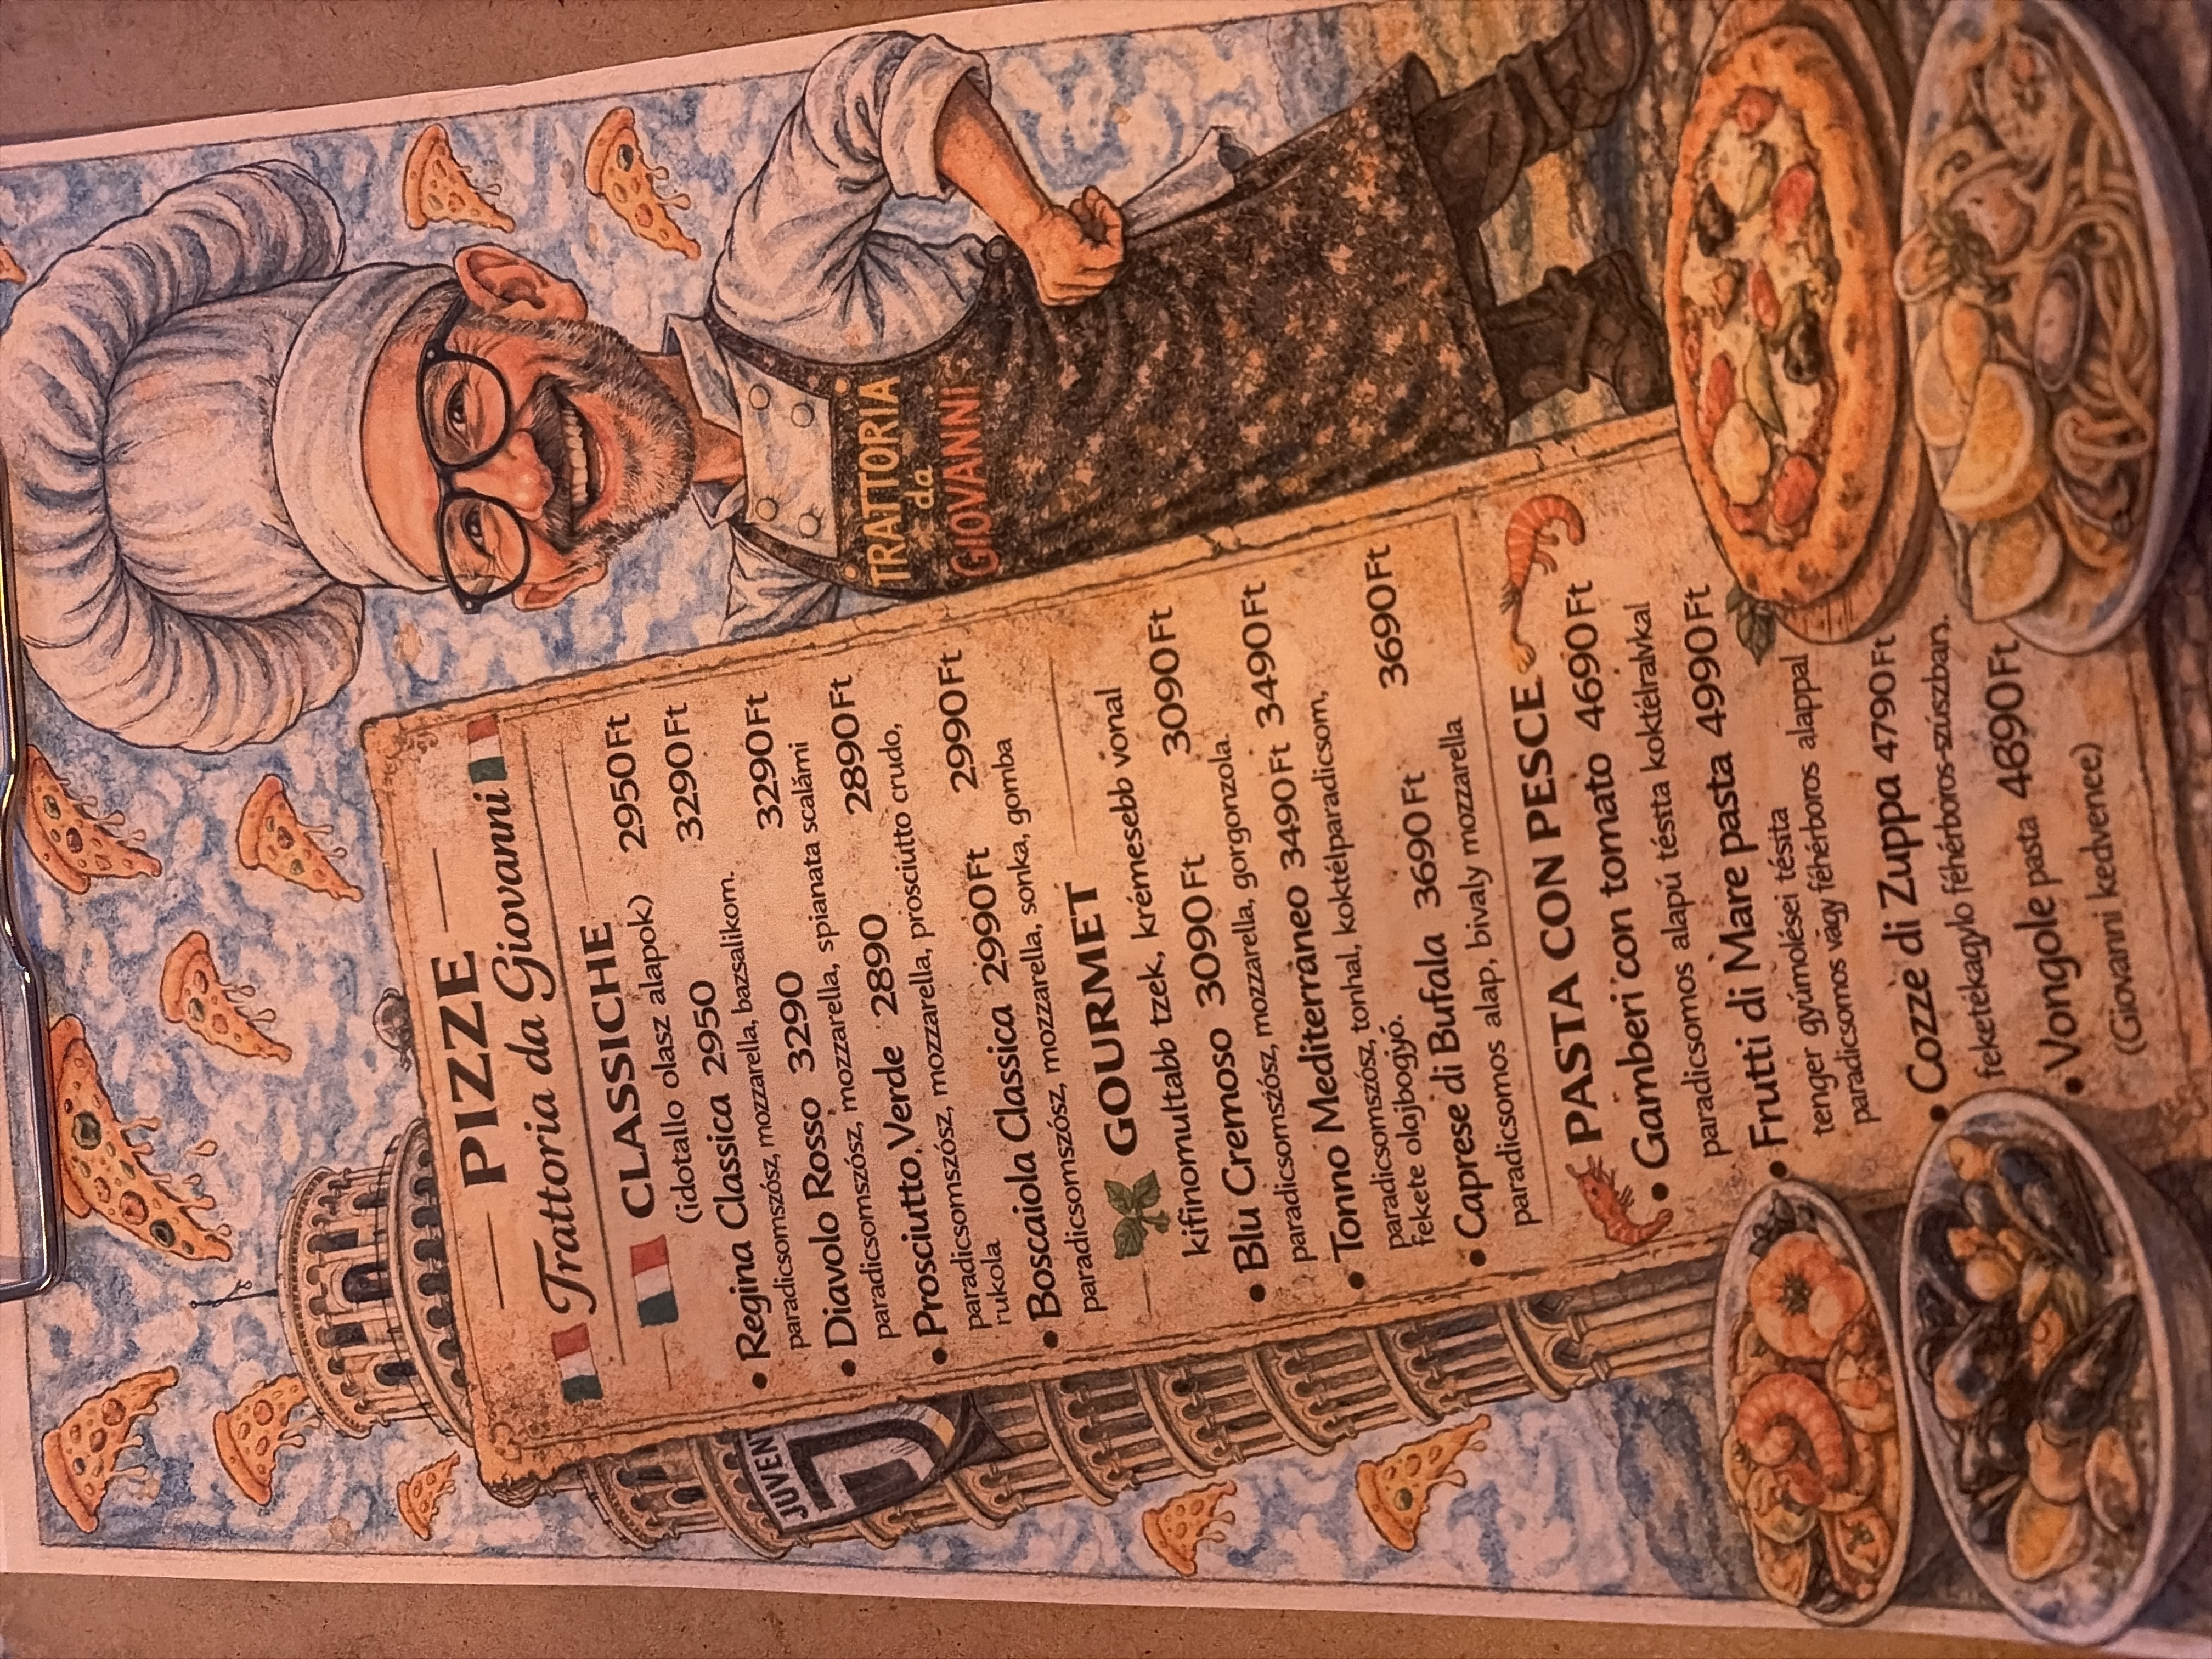 PIZZE
Trattoria da Giovanni
CLASSICHE 2950 Ft
(idotallo olasz alapok) 3290 Ft
• Regina Classica 2950
paradicsomszósz, mozzarella, bazsalikom. 3290 Ft
• Diavolo Rosso 3290
paradicsomszósz, mozzarella, spianata scalámi
• Prosciutto, Verde 2890 2890 Ft
paradicsomszósz, mozzarella, prosciutto crudo,
rukola
• Boscaiola Classica 2990 Ft 2990 Ft
paradicsomszósz, mozzarella, sonka, gomba
GOURMET
kifinomultabb tzek, krémesebb vonal
• Blu Cremoso 3090 Ft 3090 Ft
paradicsomszósz, mozzarella, gorgonzola.
• Tonno Mediterráneo 3490 Ft 3490 Ft
paradicsomszósz, tonhal, koktélparadicsom,
fekete olojbogyó.
• Caprese di Bufala 3690 Ft 3690 Ft
paradicsomos alap, bivaly mozzarella
PASTA CON PESCE
• Gamberi con tomato 4690 Ft
paradicsomos alapú téstta koktélralvkal
• Frutti di Mare pasta 4990 Ft
tenger gyúmolései tésita
paradicsomos vagy féhérboros alappal
• Cozze di Zuppa 4790 Ft
feketékagylo féhérboros-szúszban.
• Vongole pasta 4890 Ft
(Giovanni kedvence)
TRATTORIA
da
GIOVANNI
JUVENT